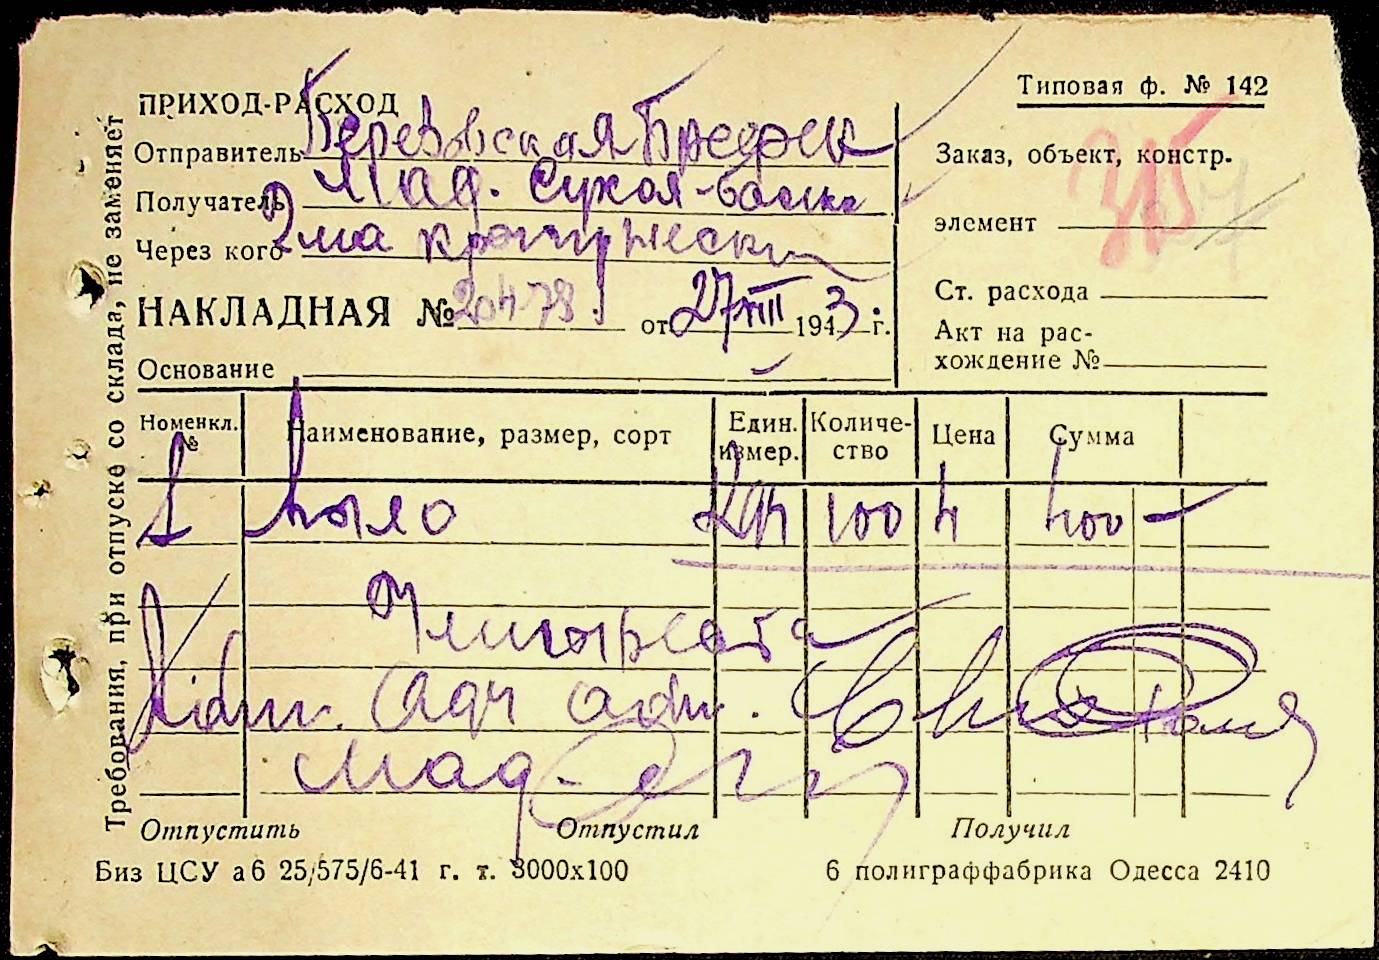 Типовая ф. № 142
ПРИХОД-РАСХОД
Отправитель Березовская Префек
Получатель Маг. Сухая-балка
Через кого
НАКЛАДНАЯ № 20478 от 27 XIII 1943 г.
Основание
Заказ, объект, констр.
элемент
315
Ст. расхода
Акт на рас-
хождение №
Требования, при отпуске со склада, не заменяет
Номенкл. № Наименование, размер, сорт Един. измер. Количе-ство Цена Сумма
1 Мыло Кгр 100 4 400 —
Четыреста
Маг.
Отпустить Отпустил Получил
Биз ЦСУ а6 25/575/6-41 г. т. 3000х100 6 полиграффабрика Одесса 2410